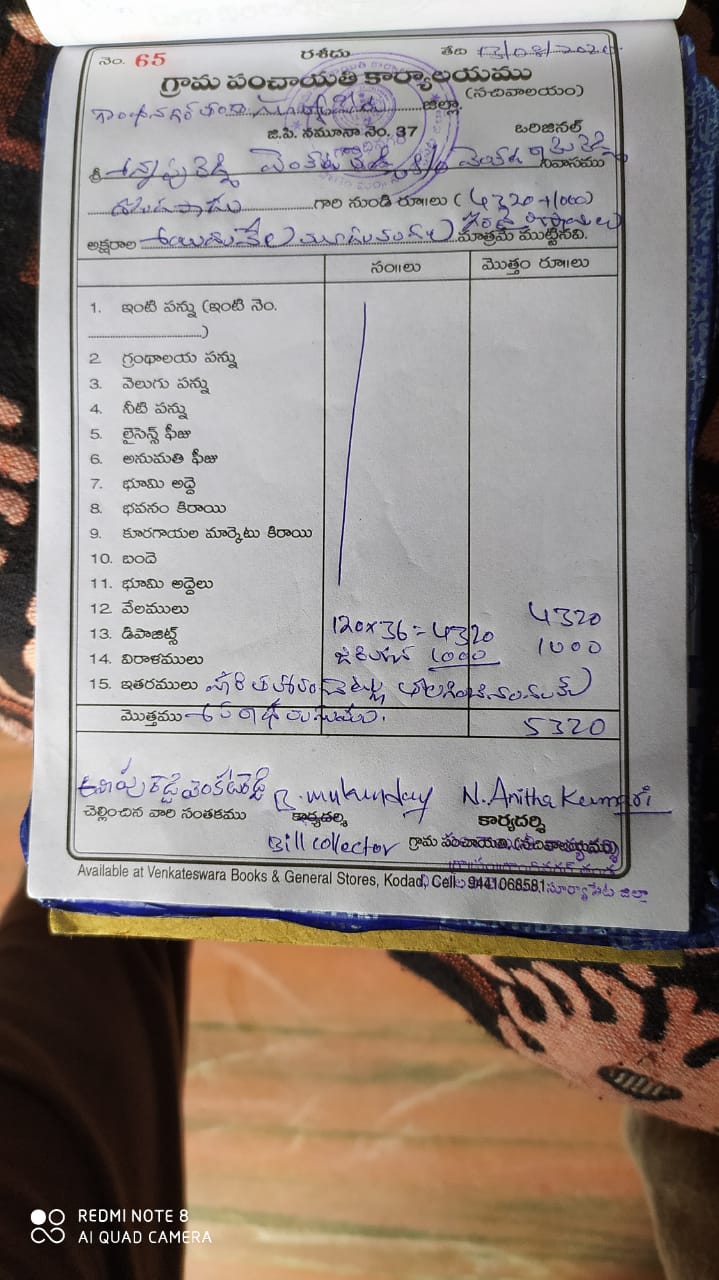 నెం. 65 రశీదు తేది 13/08/2020
గ్రామ పంచాయతి కార్యాలయము
(సచివాలయం)
గాంధీనగర్ తండా సూర్యాపేట జిల్లా.
జి.పి. నమూనా నెం. 37 ఒరిజినల్
శ్రీ అన్నపురెడ్డి వెంకట రెడ్డి S/o నివాసము
గారి నుండి రూ॥లు (4320+1000)
అక్షరాల అయిదువేల మూడువందల ఇరవై రూపాయలు మాత్రమే ముట్టినవి.
సం॥లు మొత్తం రూ॥లు
1. ఇంటి పన్ను (ఇంటి నెం.
........................)
2. గ్రంథాలయ పన్ను
3. వెలుగు పన్ను
4. నీటి పన్ను
5. లైసెన్స్ ఫీజు
6. అనుమతి ఫీజు
7. భూమి అద్దె
8. భవనం కిరాయి
9. కూరగాయల మార్కెటు కిరాయి
10. బందె
11. భూమి అద్దెలు
12. వేలములు 4320
13. డిపాజిట్స్ 120x36=4320 1000
14. విరాళములు 1000
15. ఇతరములు
మొత్తము 5320
R. mukunday N. Anitha Kumari
చెల్లించిన వారి సంతకము కార్యదర్శి కార్యదర్శి
Bill collector గ్రామ పంచాయతి (సచివాలయము)
Available at Venkateswara Books & General Stores, Kodad, Cell : 9441068581 సూర్యాపేట జిల్లా
REDMI NOTE 8
AI QUAD CAMERA